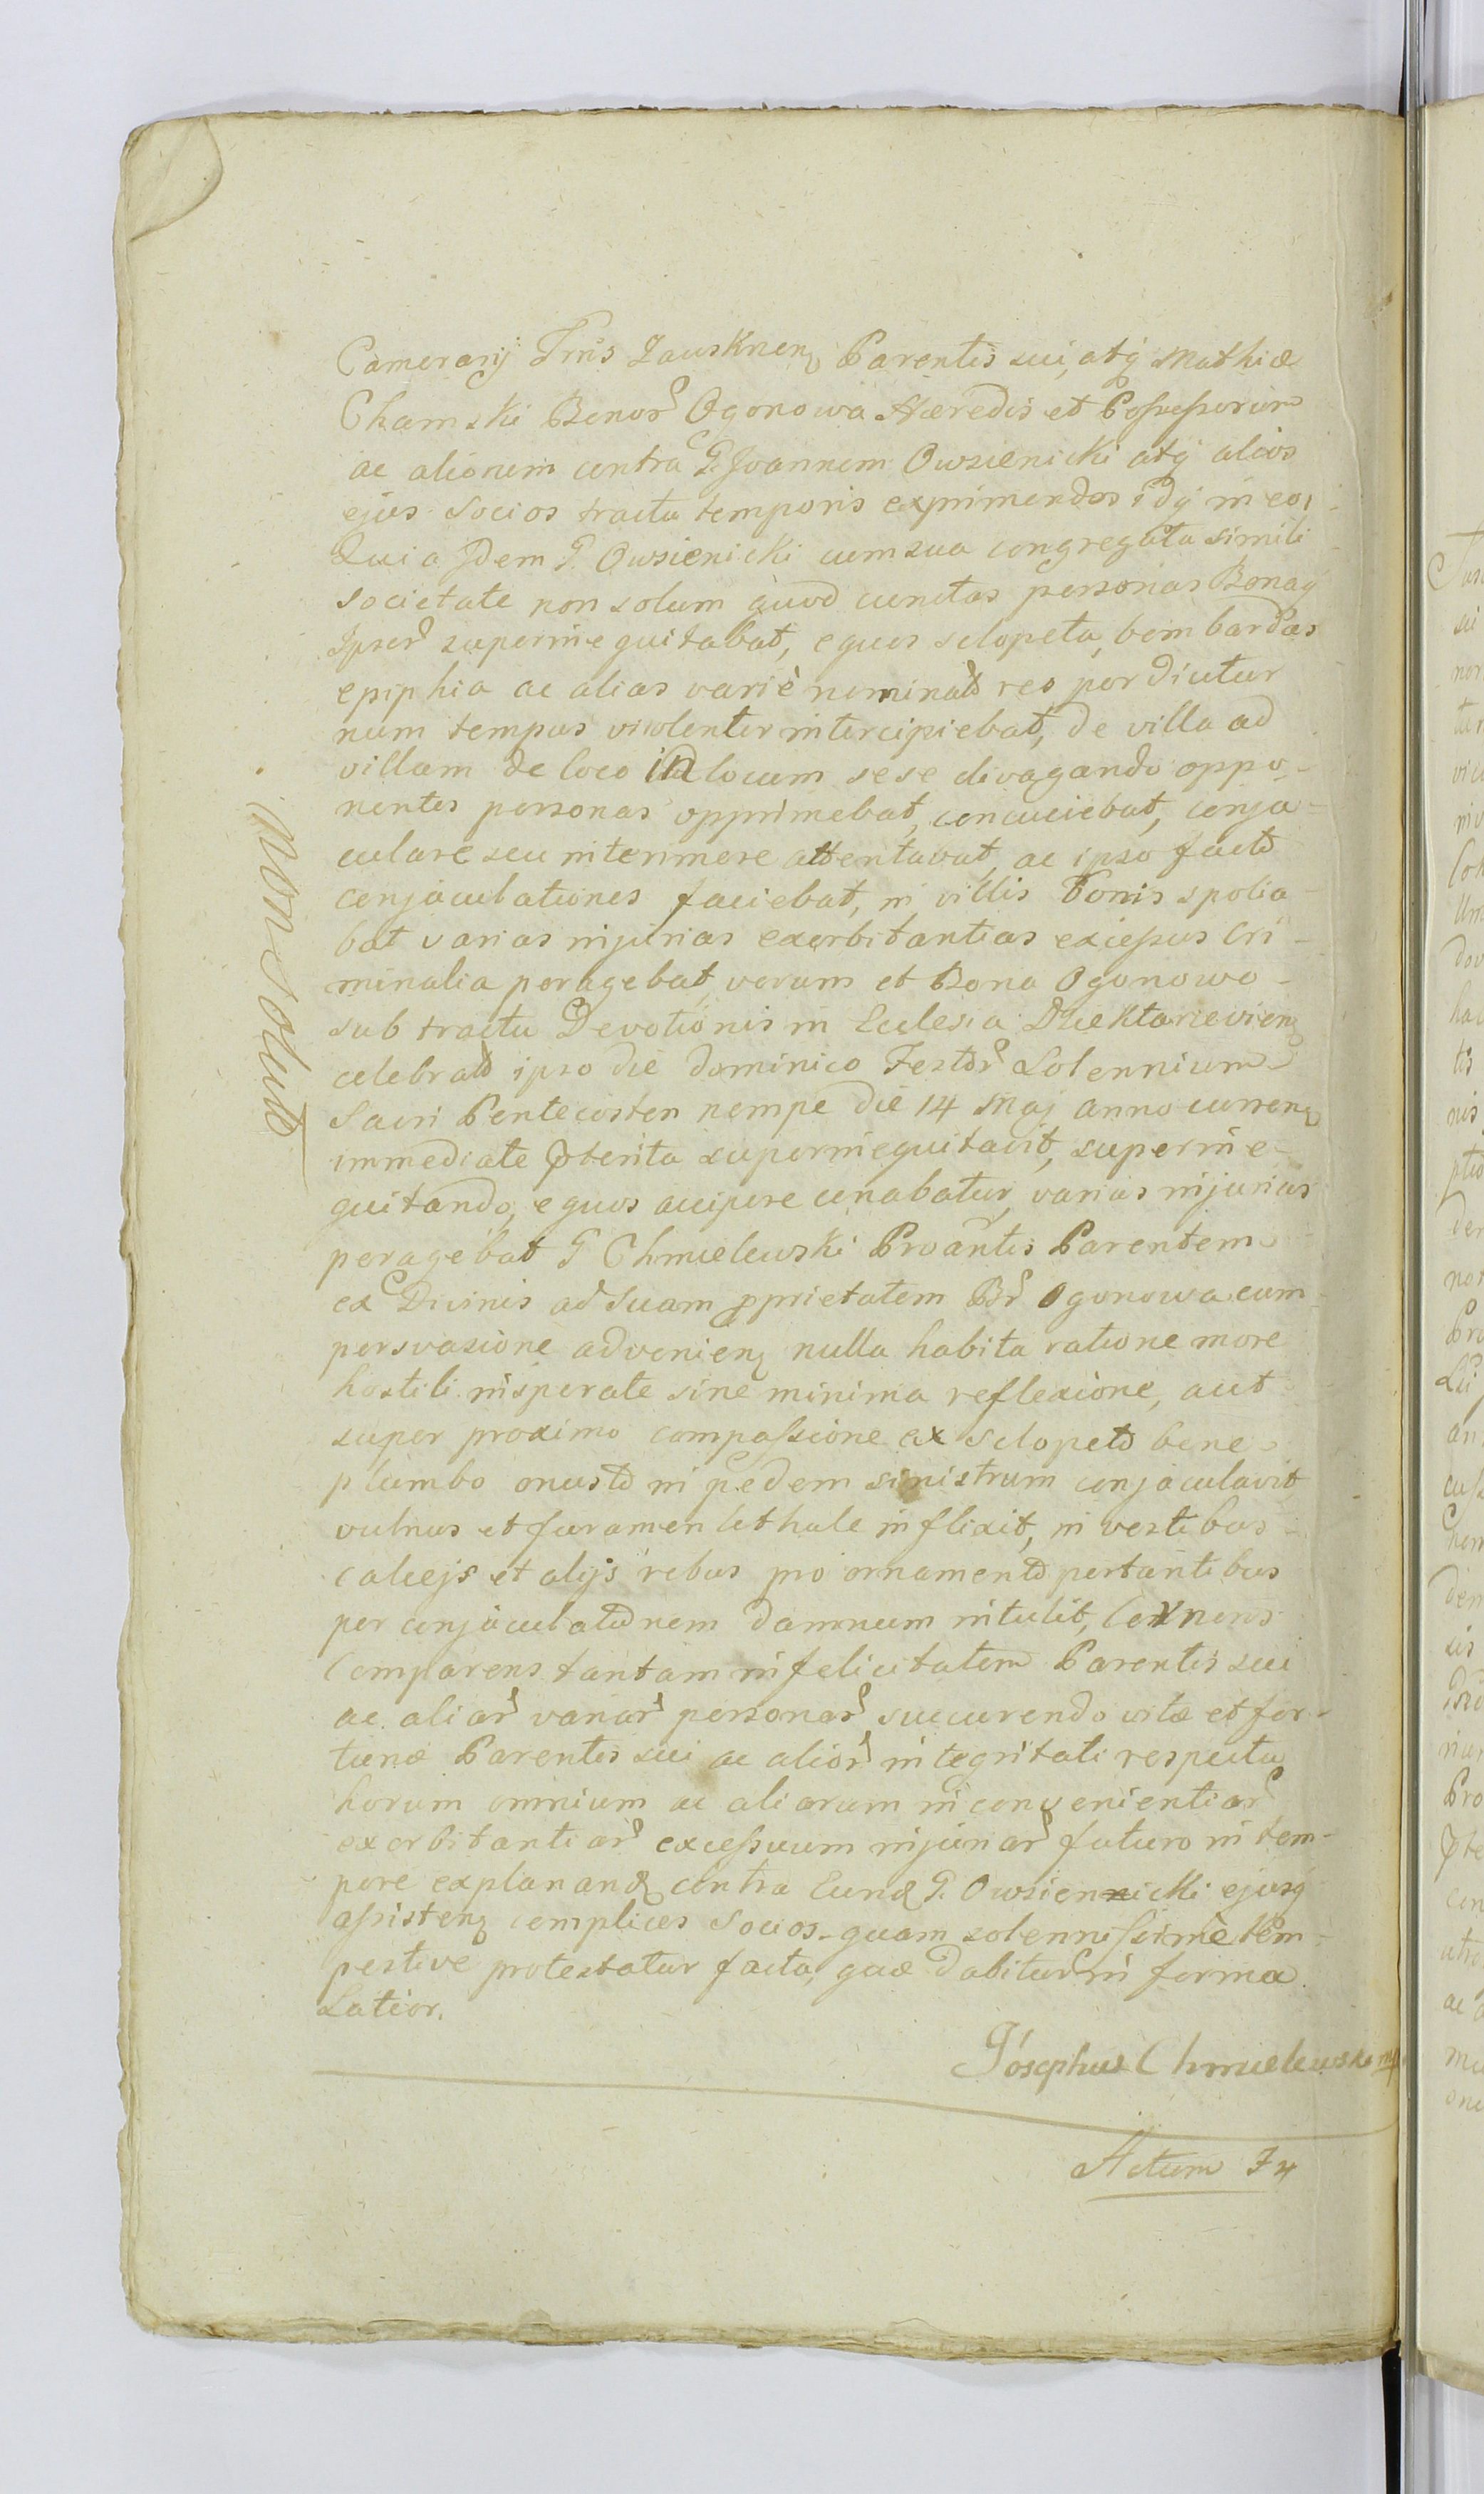 Camerarij Trrīs Zausknen Parentis sui, atq́ Mathiæ
Chamski Bonor Ogonowa Hæredis et Possessorum
ac aliorum contra G. Joannem Owsienicki atq́ alios
ejus Socios tractu temporis exprimendos idq́ in eo,
Quia Idem G. Owsienicki cum sua congregata simili
societate non solum quod cunctas personas Bonaq́
Ipsor superinequitabat, equos sclopeta, bombardas
epiphia ac alias variè nominatas res per diutur
num tempus violenter intercipiebat, de villa ad
villam de loco in locum sese divagando oppo-
nentes personas opprimebat, concuciebat, conja-
culare seu interimere attentavat, ac ipso facto
conjaculationes faciebat, in villis Bonis spolia-
bat varias injurias exorbitantias excessus cri-
minalia peragebat, verum et Bona Ogonowo-
sub tractu Devotionis in Eclesia Dziektarievien
celebrato ipso die dominico Festor Solennium
Sacri Pentecosten nempe die 14 Maj anno curren
immediate pterita superinequitavit, superine-
quitando, equos accipere conabatur, varias injurias
peragebat G Chmielewski Proantis Parentem
ex Divinis ad Suam pprietatem Br Ogonowa cum
persvasione advenien nulla habita ratione more
hostili insperate sine minima reflexione, aut
super proximo compassione ex sclopeto bene
plumbo onusto in pedem sinistrum conjaculavit
vulnus et foramen lethale inflixit, in vestibus
calcejs et alijs rebus pro ornamento portantibus
per conjaculationem damnum intulit, Cernens
Comparens tantam infelicitatem Parentis sui
ac aliar variar personar succurendo vitæ et for-
tunæ Parentis sui ac alior integritati respectu
horum omnium ac aliarum inconvenientiar
exorbitantiar excessuum injuriar futuro in tem-
pore explanand contra Eund G. Owsiennicki ejusq́
assisten complices Socios quam solennissime tem-
pestive protestatur facta, quæ dabitur in forma
Latior.
Josephus Chmielewski mp
Actum Fr
Non Solut